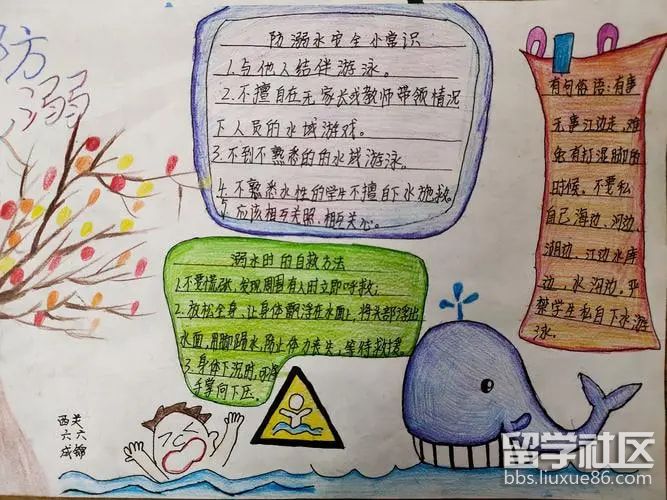 防
溺
防溺水安全小常识
1.与他人结伴游泳。
2.不擅自在无家长或教师带领情况
下人员的水域游戏。
3.不到不熟悉的的水域游泳。
4.不熟悉水性的学生不擅自下水施救。
5.应该相互关照、相互关心。
溺水时的自救方法
1.不要慌张,发现周围有人时立即呼救;
2.放松全身,让身体飘浮在水面上,将头部浮出
水面,用脚踢水,防止体力丧失,等待救援;
3.身体下沉时,可
手掌向下压
有句俗语:有事
无事江边走,难
免有打湿脚的
时候。不要私
自己海边、河边、
湖边、江边水库
边、水沟边,严
禁学生私自下水游
泳。
西关
六六
成锦
留学社区
bbs.liuxue86.com